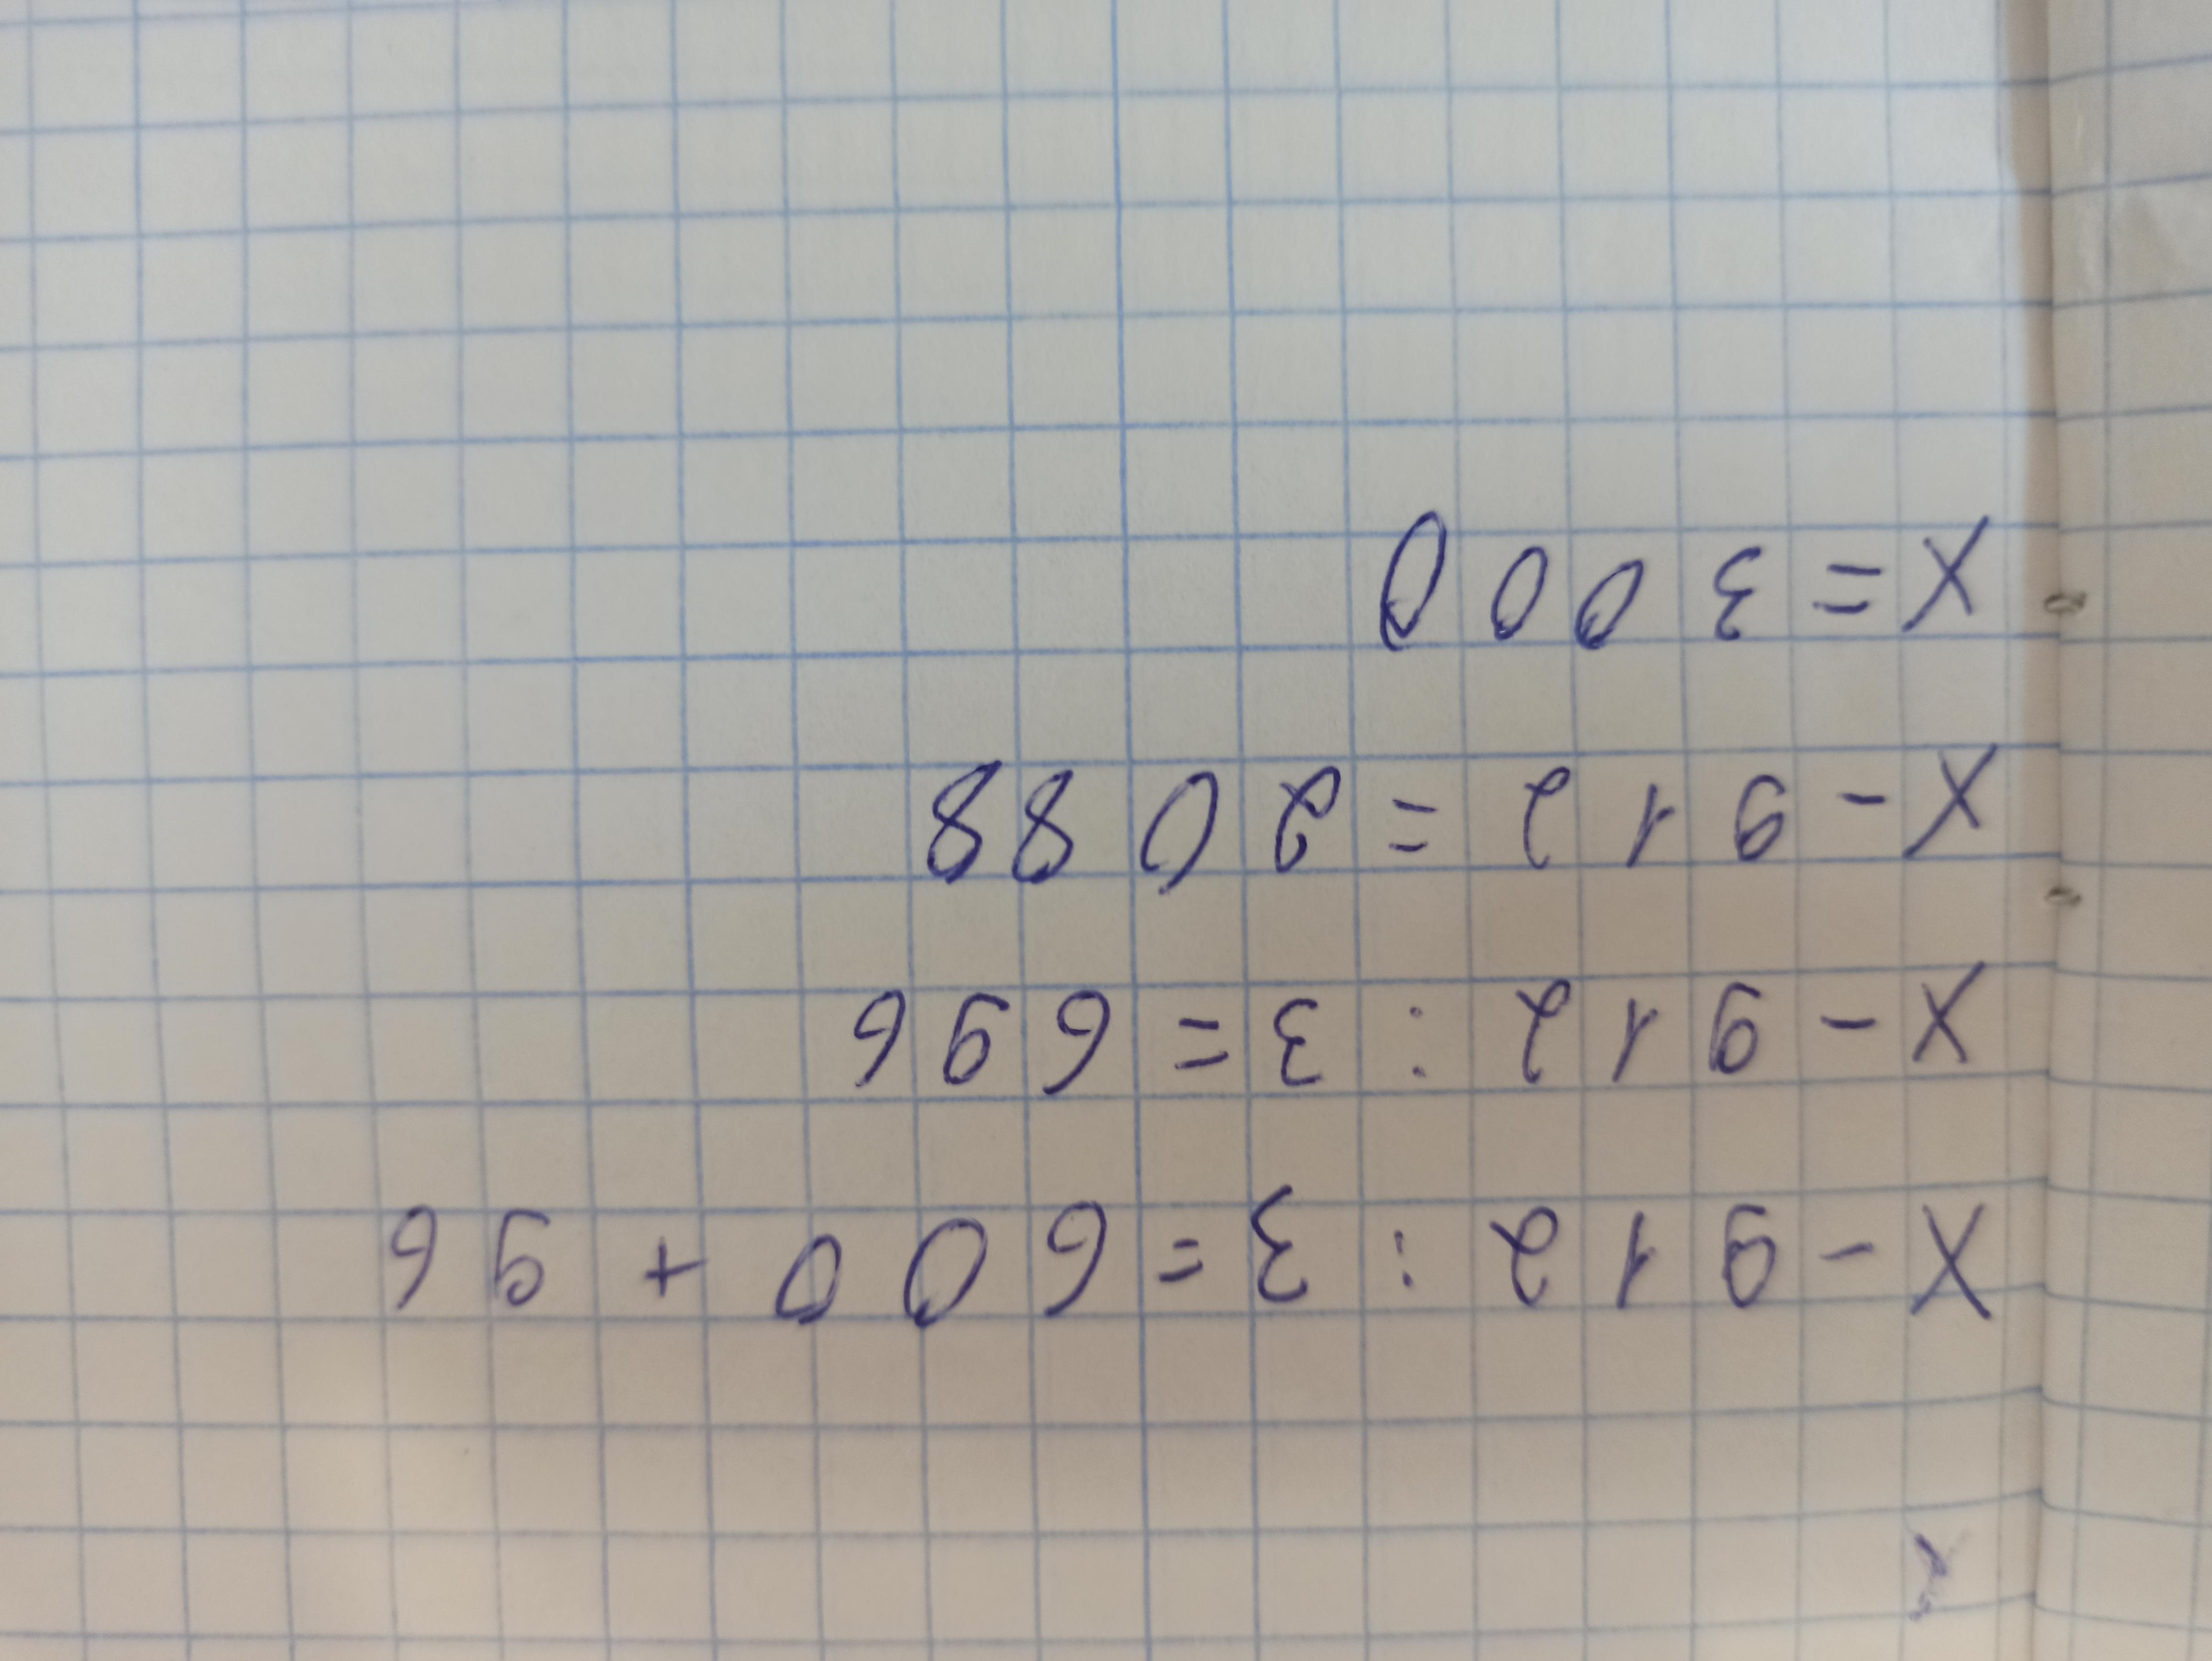 X - 912 : 3 = 600 + 96
X - 912 : 3 = 696
X - 912 = 2088
X = 3000